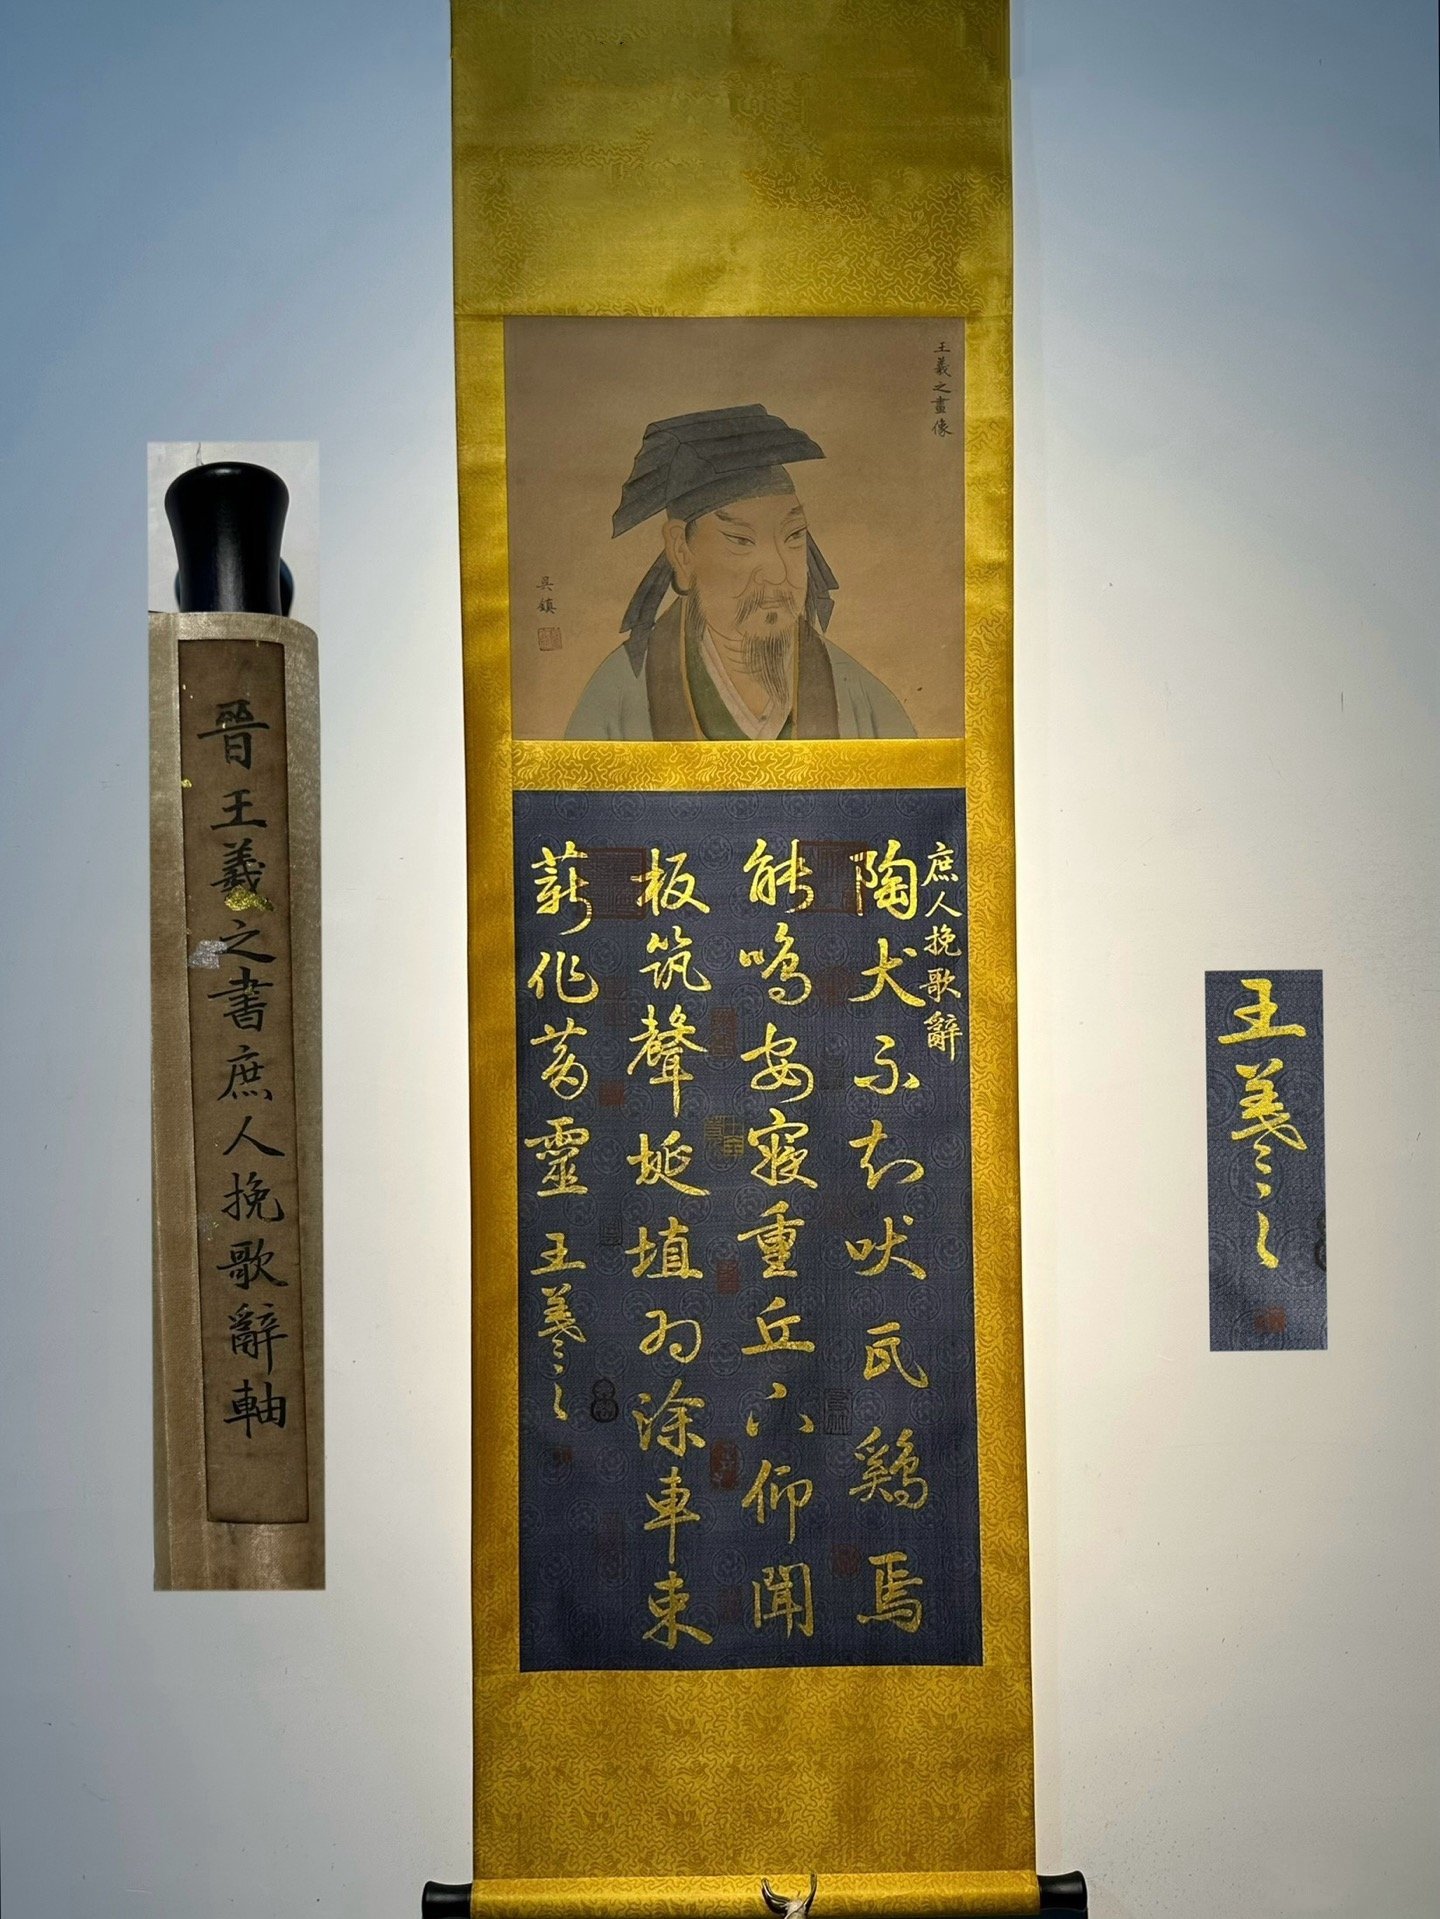 王羲之畫像
吳鎮
庶人挽歌辭
陶犬不知吠瓦鷄焉
能鳴安寢重丘下仰聞
板筑聲埏埴為涂車束
薪作芻靈王羲之
晉王羲之書庶人挽歌辭軸
王羲之